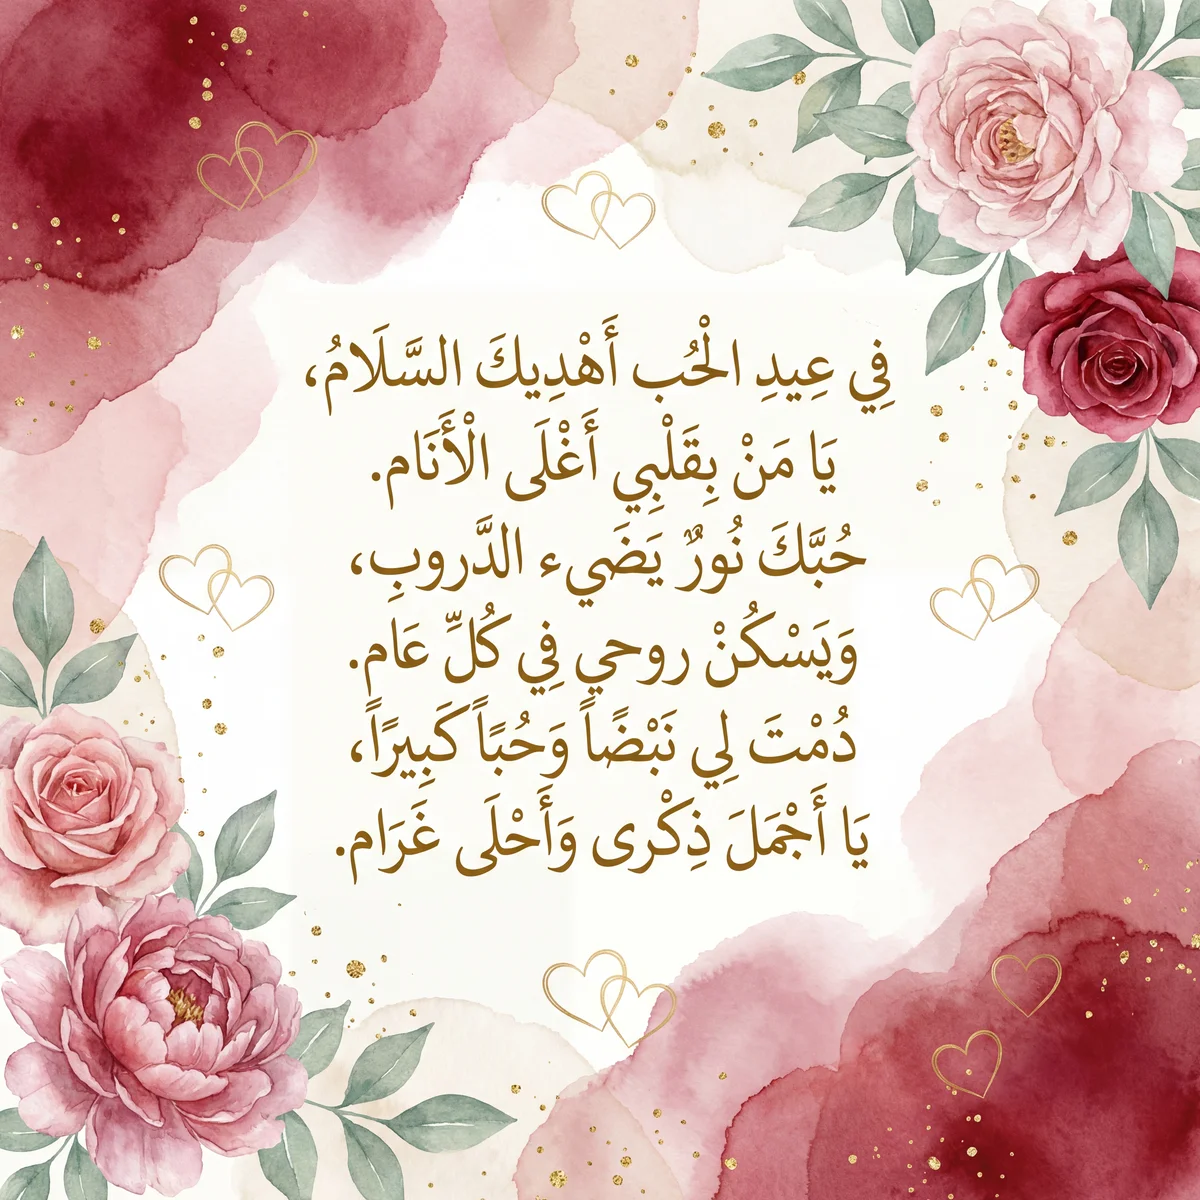 فِي عِيدِ الْحُب أَهْدِيكَ السَّلَامُ،
يَا مَنْ بِقَلْبِي أَغْلَى الْأَنَام.
حُبَّكَ نُورٌ يَضَيء الدَّروبِ،
وَيَسْكُنْ روحي فِي كُلِّ عَام.
دُمْتَ لِي نَبْضًاً وَحُبًاً كَبِيرًاً،
يَا أَجْمَلَ ذِكْرى وَأَحْلَى غَرَام.